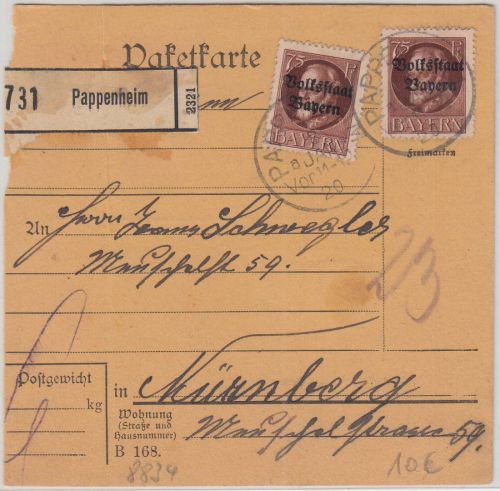 Paketkarte
731 Pappenheim 2321
75 Pf
Volksstaat
Bayern
BAYERN
75 Pf
Volksstaat
Bayern
BAYERN
PAPPE
Vorm
20
Freimarken
An Herrn Hans Schwegler
Meuschelst 59.
23
Postgewicht
kg
in Nürnberg
Wohnung
(Straße und
Hausnummer)
Meuschelstrasse 59.
B 168.
8834
10€